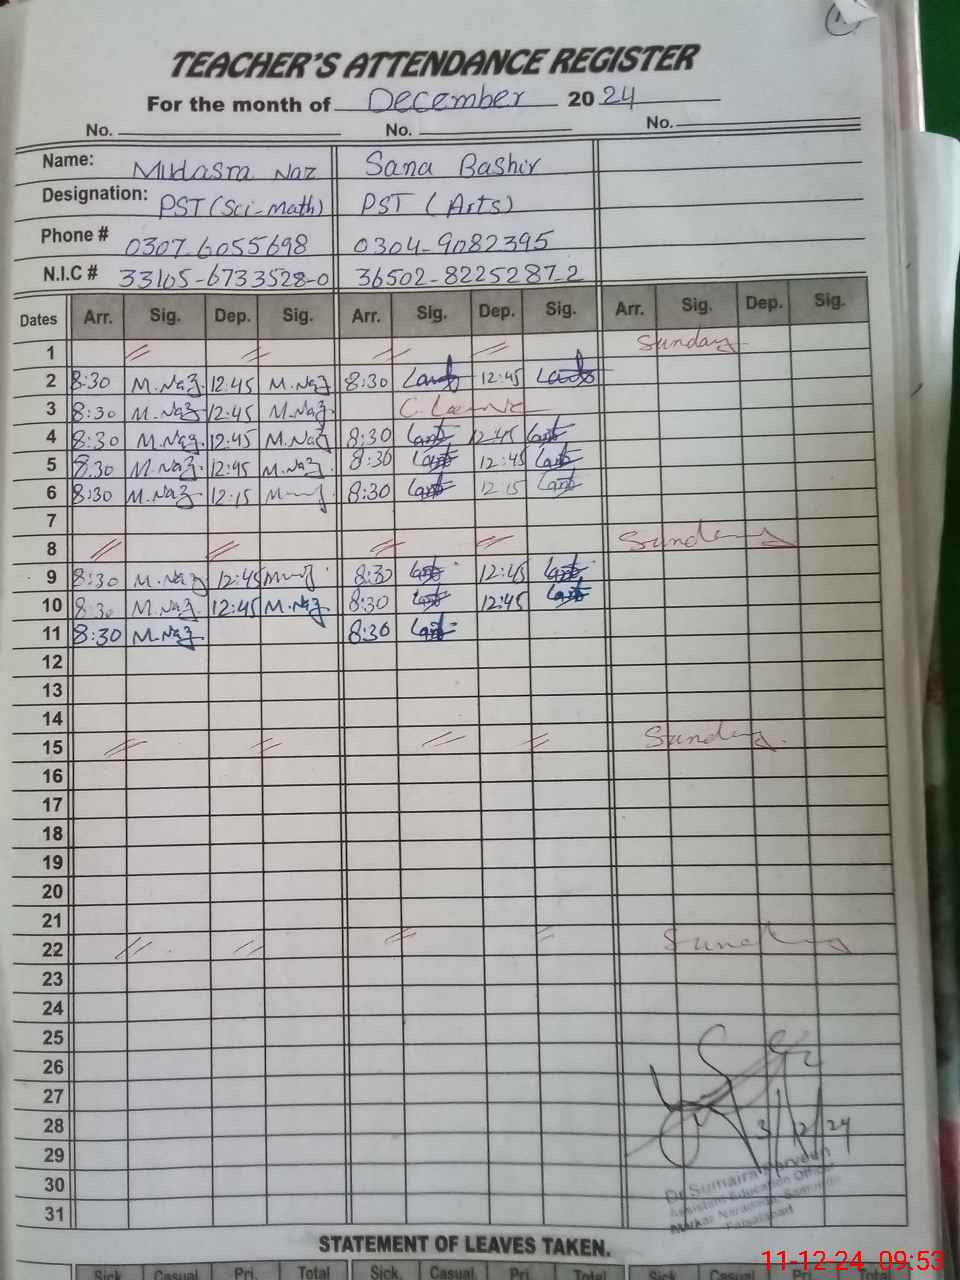 TEACHER'S ATTENDANCE REGISTER
For the month of December 2024
No. No. No.
Name: Mudasra Naz Sana Bashir
Designation: PST (Sci-Math) PST (Arts)
Phone # 0307-6055698 0304-9082395
N.I.C # 33105-6733528-0 36502-8225287-2
Dates Arr. Sig. Dep. Sig. Arr. Sig. Dep. Sig. Arr. Sig. Dep. Sig.
1 Sunday
2 8:30 M.Naz 12:45 M.Naz 8:30 12:45
3 8:30 M.Naz 12:45 M.Naz C. Leave
4 8:30 M.Naz 12:45 M.Naz 8:30 12:45
5 8:30 M.Naz 12:45 M.Naz 8:30 12:45
6 8:30 M.Naz 12:15 8:30 12:15
7
8 Sunday
9 8:30 M.Naz 12:45 8:30 12:45
10 8:30 M.Naz 12:45 M.Naz 8:30 12:45
11 8:30 M.Naz 8:30
12
13
14
15 Sunday
16
17
18
19
20
21
22 Sunday
23
24
25
26
27
28 3/12/24
29
30 Dr Sumaira Parveen
Assistant Education Officer
31 Markaz
Faisalabad
STATEMENT OF LEAVES TAKEN.
Sick Casual Pri. Total Sick. Casual Pri. Total Sick Casual Pri. Total
11-12-24 09:53